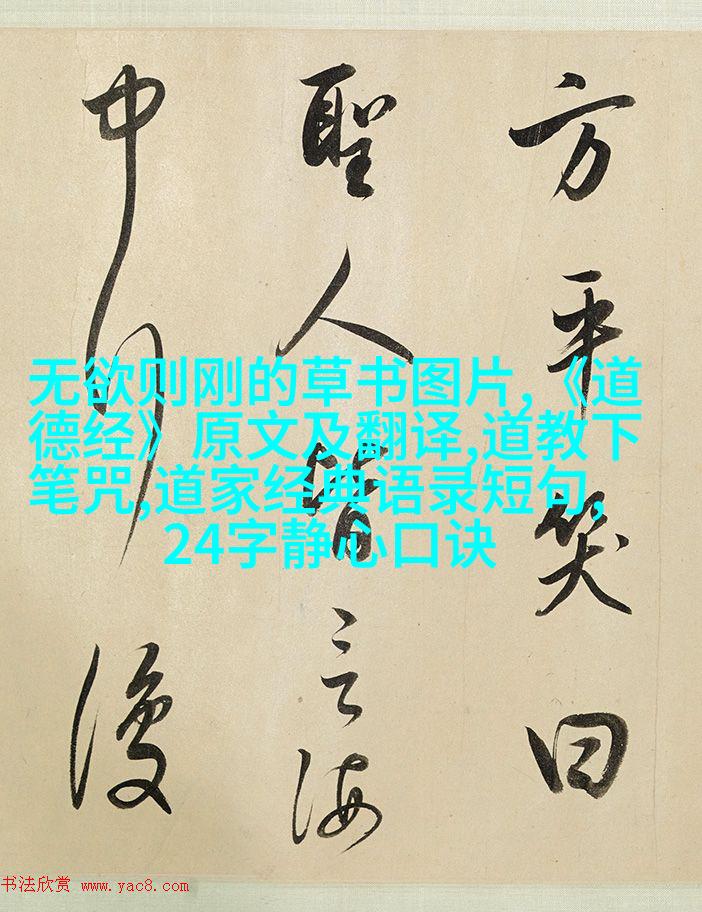 方平笑曰
聖人皆言海
中行復
无欲则刚的草书图片,《道
德经》原文及翻译,道教下
笔咒,道家经典语录短句,
24字静心口诀
书法欣赏 www.yac8.com